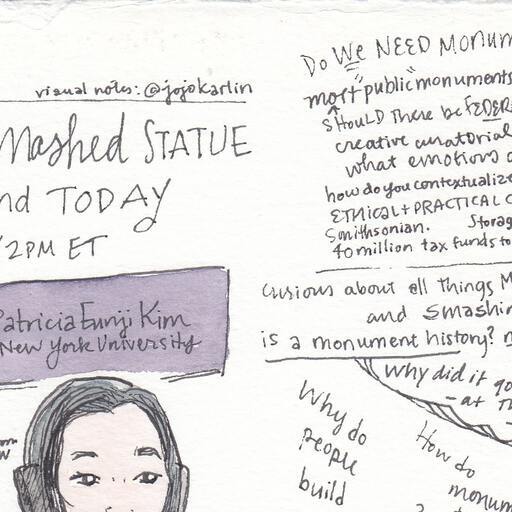 visual notes: @jojokarlin
Mashed STATUE
nd TODAY
/2PM ET
Patricia Eunji Kim
New York University
Do We NEED MONUM
most "public" monuments
SHOULD There be FEDER
creative curatorial
what emotions
how do you contextualize
ETHICAL + PRACTICAL C
Smithsonian. Storag
40 million tax funds to
curious about all things M
and Smashin
is a monument history?
Why did it go
- at Th
Why do
people
build
How do
monum